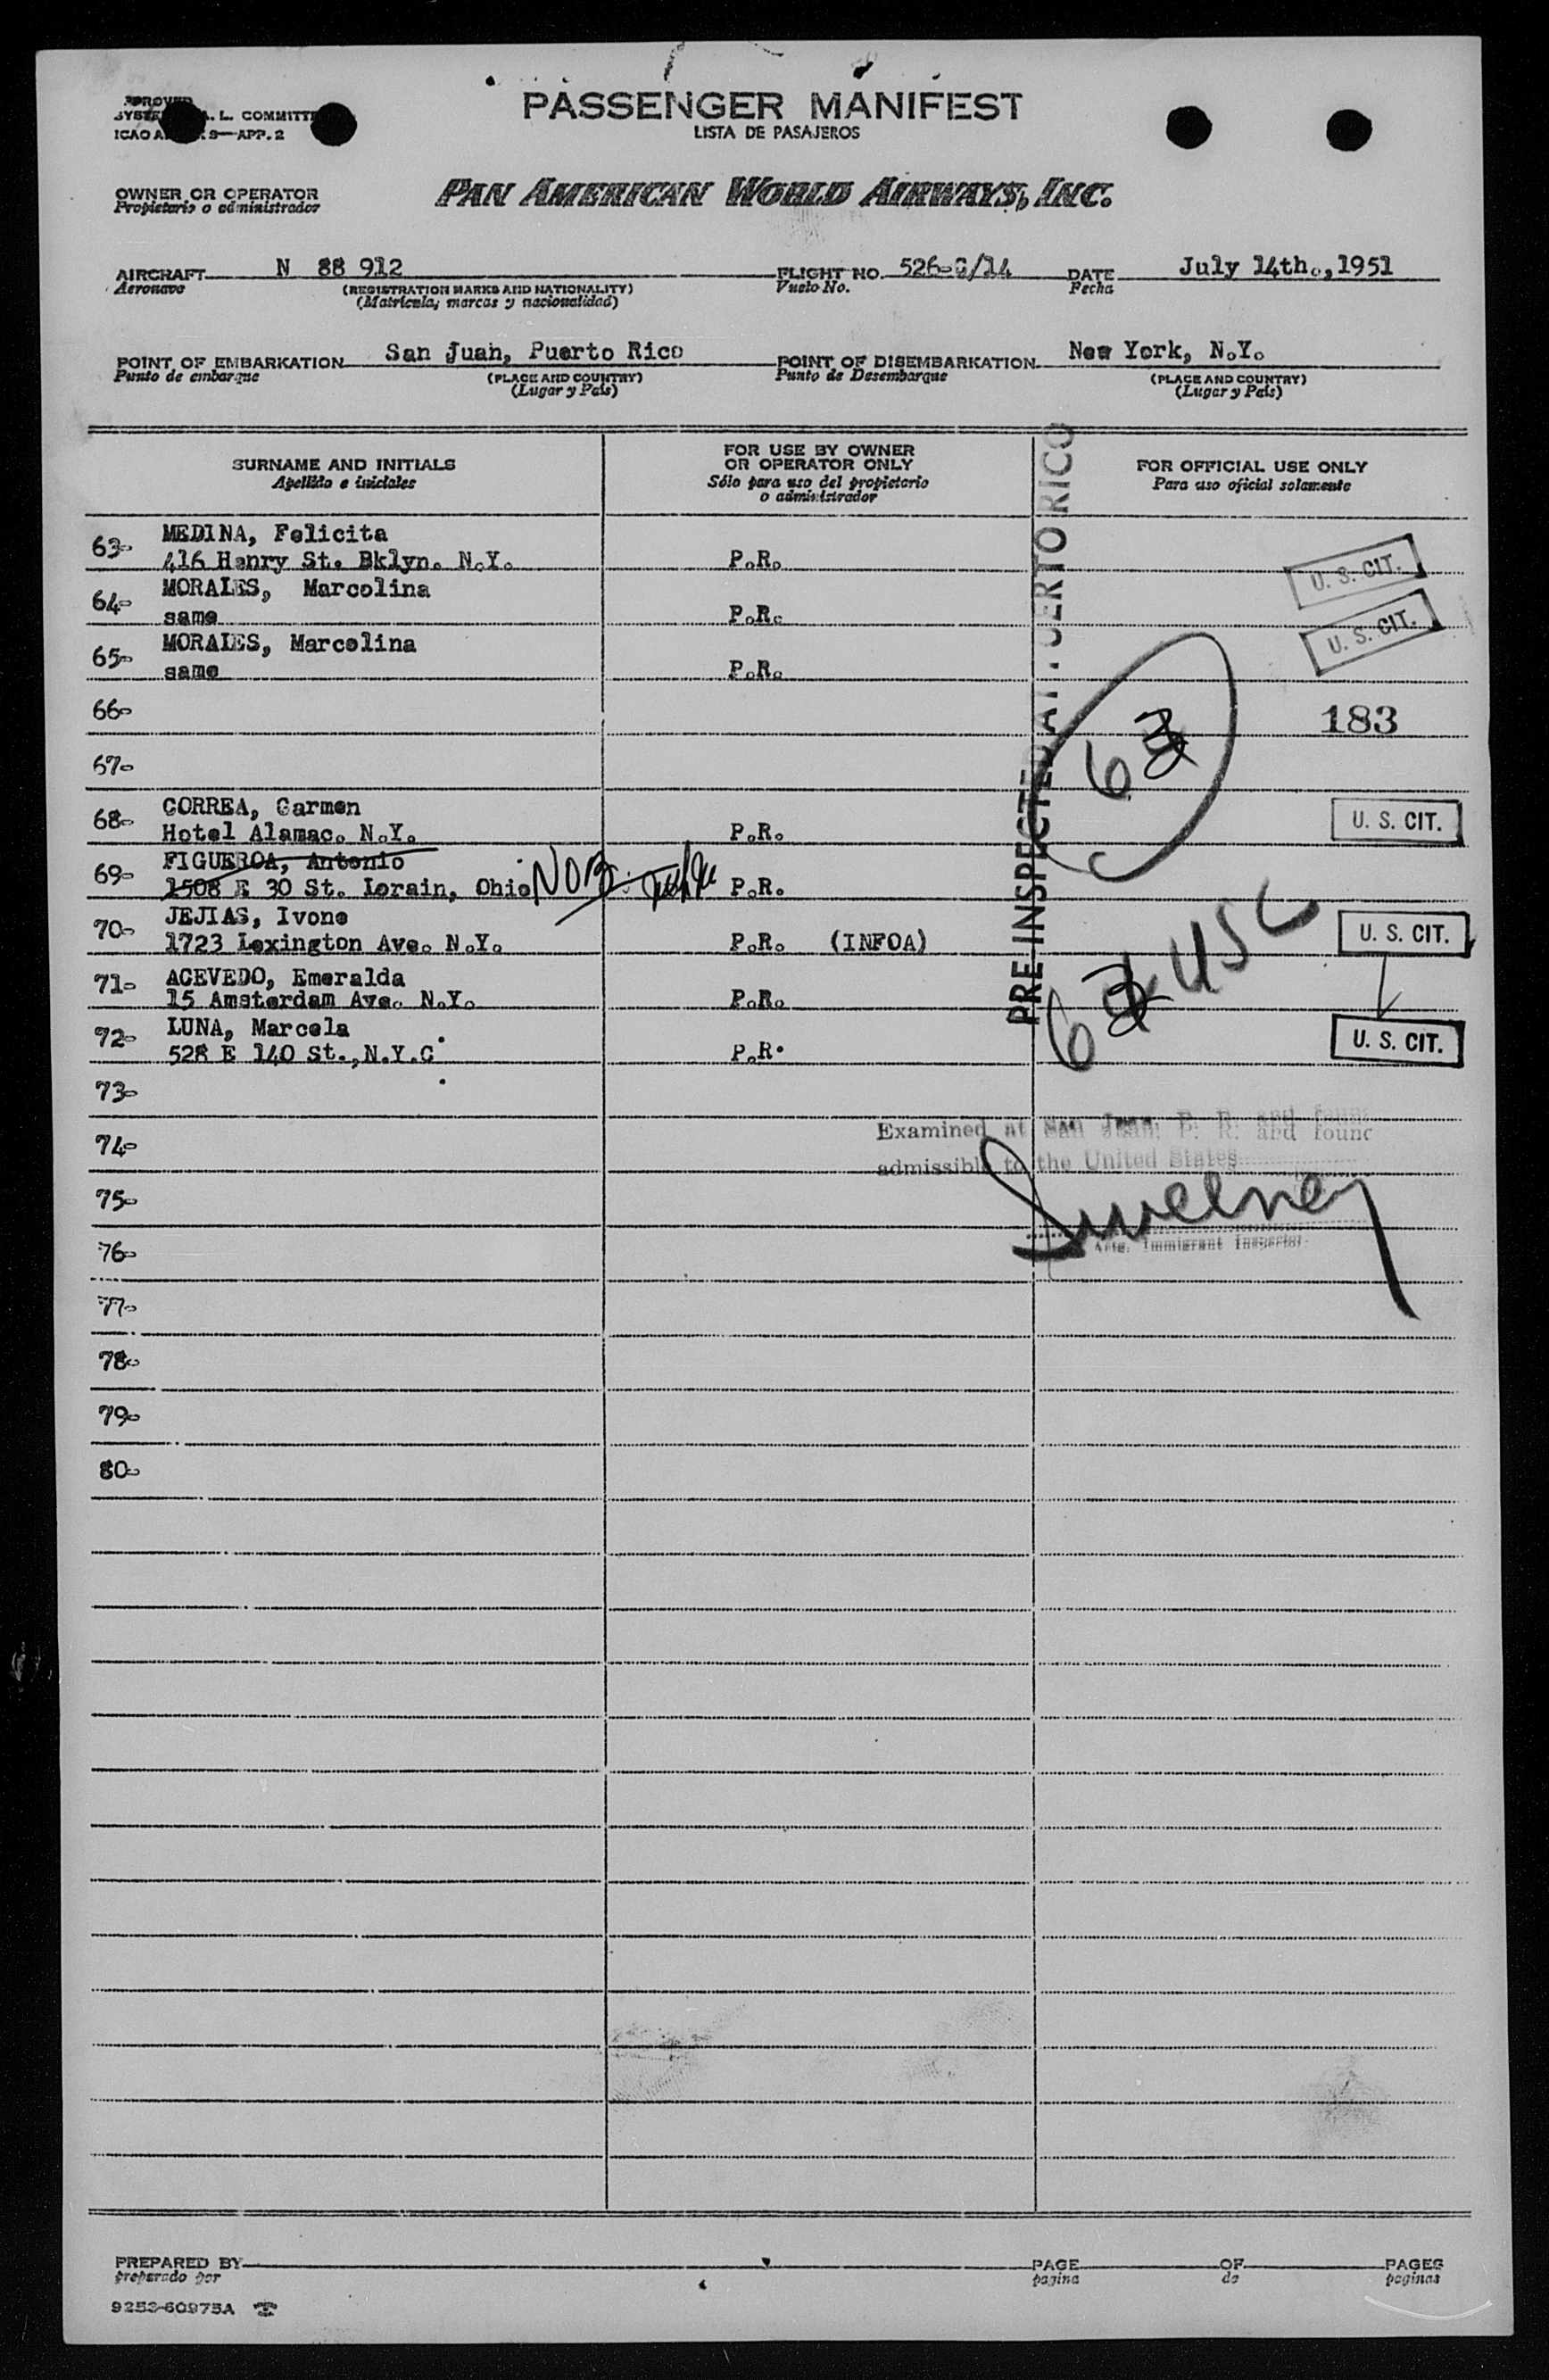 PASSENGER MANIFEST
LISTA DE PASAJEROS
L. COMMITT
ICAO 9—APP. 2
OWNER OR OPERATOR
Propietario o administrador
PAN AMERICAN WORLD AIRWAYS, INC.
AIRCRAFT N 88 912 FLIGHT NO. 526-G/14 DATE July 14th., 1951
Aeronave (REGISTRATION MARKS AND NATIONALITY) Vuelo No. Fecha
(Matrícula, marcas y nacionalidad)
POINT OF EMBARKATION San Juan, Puerto Rico POINT OF DISEMBARKATION New York, N.Y.
Punto de embarque (PLACE AND COUNTRY) Punto de Desembarque (PLACE AND COUNTRY)
(Lugar y País) (Lugar y País)
SURNAME AND INITIALS
Apellido e iniciales
FOR USE BY OWNER
OR OPERATOR ONLY
Sólo para uso del propietario
o administrador
FOR OFFICIAL USE ONLY
Para uso oficial solamente
63- MEDINA, Felicita
416 Henry St. Bklyn. N.Y. P.R. U. S. CIT.
64- MORALES, Marcolina
same P.R. U. S. CIT.
65- MORALES, Marcelina
same P.R.
66- 183
67-
68- CORREA, Carmen
Hotel Alamac. N.Y. P.R. U. S. CIT.
69- FIGUEROA, Antonio
1508 E 30 St. Lorain, Ohio NOB P.R.
70- JEJIAS, Ivone
1723 Lexington Ave. N.Y. P.R. (INFOA) U. S. CIT.
71- ACEVEDO, Emeralda
15 Amsterdam Ave. N.Y. P.R.
72- LUNA, Marcela
528 E 140 St., N.Y.C. P.R. U. S. CIT.
PRE-INSPECTED AT PUERTO RICO
63
63 USC
73-
74- Examined at San Juan, P. R. and found
admissible to the United States
75-
Sweeney
76- Immigrant Inspector
77-
78-
79-
80-
PREPARED BY PAGE OF PAGES
preparado por pagina de paginas
9253-60975A